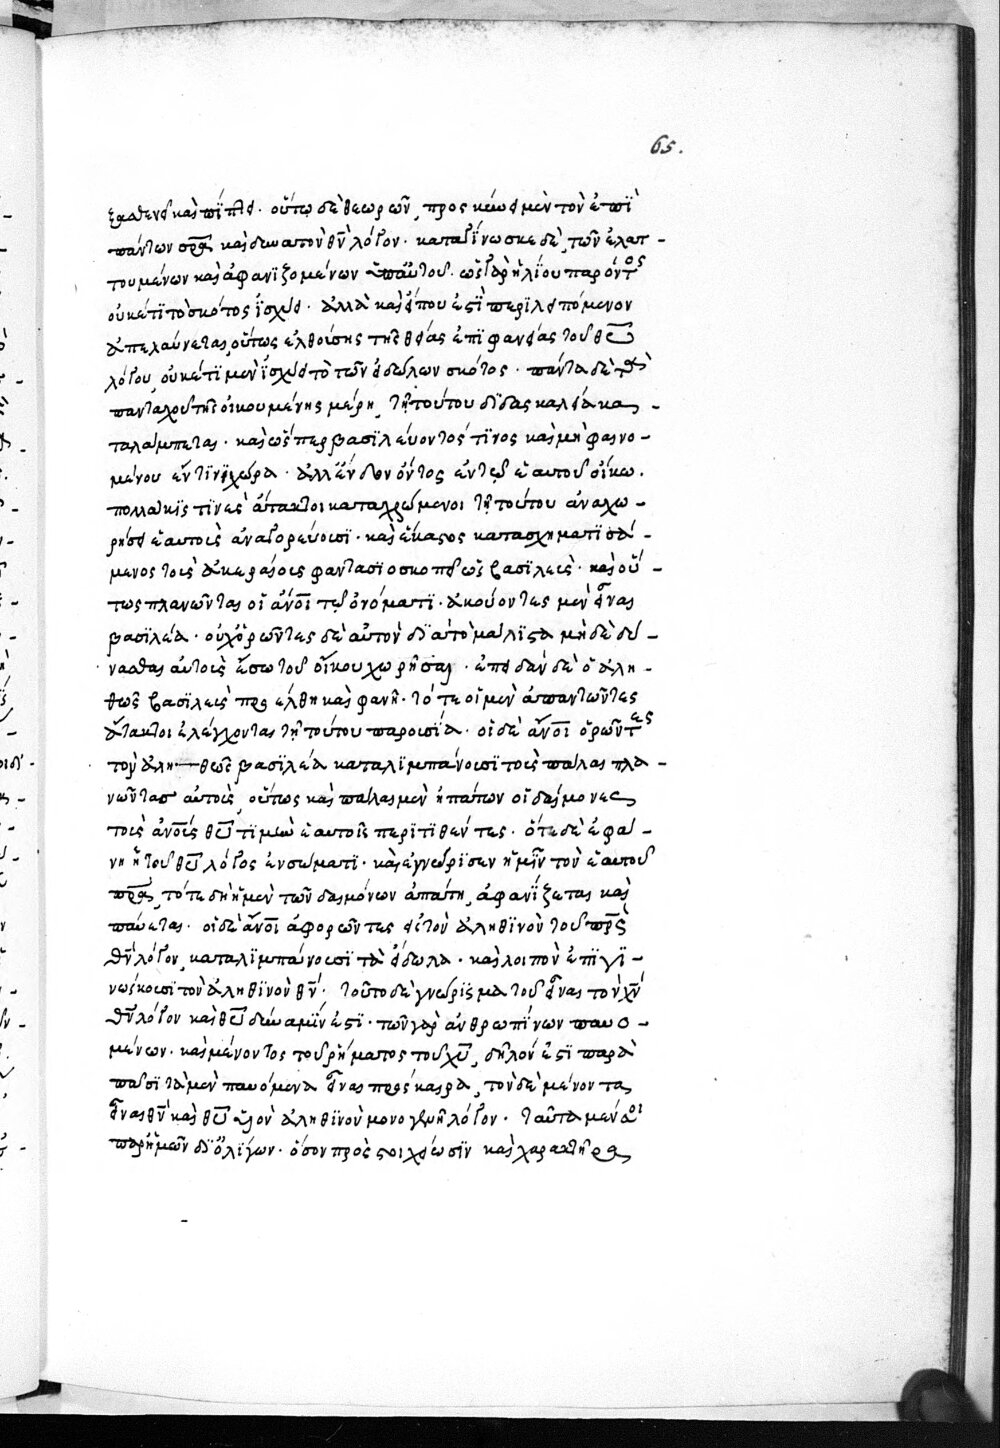 65.
εμαθεν καὶ πίπτει. οὕτω δὲ θεωρῶν, προσκύνει μὲν τὸν ἐπὶ
πάντων σρα καὶ δυνατὸν θῦ λόγον. καταγίνωσκε δὲ, τῶν ἐλατ-
τουμένων καὶ ἀφανιζομένων ὑπ' αὐτοῦ. ὡς γὰρ ἡλίου παρόντος
οὐκέτι τὸ σκότος ἰσχύει. ἀλλὰ καὶ εἴ που ἐστὶ περιλειπόμενον
ἀπελαύνεται, οὕτως ἐλθούσης τῆς θείας ἐπιφανείας τοῦ θῦ
λόγου, οὐκέτι μὲν ἰσχύει τὸ τῶν εἰδώλων σκότος. πάντα δὲ τὰ
πανταχοῦ τῆς οἰκουμένης μέρη, τῇ τούτου διδασκαλείᾳ κα-
ταλάμπεται. καὶ ὥσπερ βασιλεύοντός τινος καὶ μὴ φαινο-
μένου ἔν τινι χώρᾳ. ἀλλ' ἔνδον ὄντος ἐν τῷ ἑαυτοῦ οἴκῳ.
πολλάκις τινὲς ἄτακτοι καταχρώμενοι τῇ τούτου ἀναχω-
ρήσει ἑαυτοὺς ἀναγορεύουσι. καὶ ἕκαστος κατασχηματισά-
μενος τοὺς ἀκεραίους φαντασιοσκοπεῖ ὡς βασιλεὺς. καὶ οὕ-
τως πλανῶνται οἱ ἀνοι τῷ ὀνόματι. ἀκούοντες μὲν εἶναι
βασιλέα. οὐχ ὁρῶντες δὲ αὐτὸν δι' αὐτὸ μάλιστα μηδὲ δύ-
νασθαι αὐτοὺς ἔσω τοῦ οἴκου χωρῆσαι. ἐπειδὰν δὲ ὁ ἀλη-
θῶς βασιλεὺς προέλθη καὶ φανῆ. τότε οἱ μὲν ἀπαντῶντες
ἄτακτοι ἐλέγχονται τῇ τούτου παρουσίᾳ. οἱ δὲ ἄνοι ὁρῶντες
τὸν ἀλη-θῶς βασιλέα καταλιμπάνουσι τοὺς πάλαι πλα-
νῶντας αὐτοὺς, οὕτως καὶ πάλαι μὲν ἠπάτων οἱ δαίμονες
τοὺς ἀνους θῦ τιμὴν ἑαυτοῖς περιτιθέντες. ὅτε δὲ ἐφά-
νη ἡ τοῦ θῦ λόγος ἐν σώματι. καὶ ἐγνώρισεν ἡμῖν τὸν ἑαυτοῦ
πρα, τότε δὴ ἡ μὲν τῶν δαιμόνων ἀπάτη, ἀφανίζεται καὶ
παύεται. οἱ δὲ ἄνοι ἀφορῶντες εἰς τὸν ἀληθινὸν τοῦ πρς
θν λόγον, καταλιμπάνουσι τὰ εἴδωλα. καὶ λοιπὸν ἐπιγι-
νώσκουσι τὸν ἀληθινὸν θν. τοῦτο δὲ γνώρισμα τοῦ εἶναι τὸν χν
θν λόγον καὶ θῦ δύναμιν ἐστι. τῶν γὰρ ἀνθρωπίνων παυο-
μένων. καὶ μένοντος τοῦ ῥήματος τοῦ χῦ, δῆλόν ἐστι παρὰ
πᾶσι τὰ μὲν παυόμενα εἶναι πρόσκαιρα, τὸν δὲ μένοντα
εἶναι θν καὶ θῦ υἱὸν ἀληθινὸν μονογενῆ λόγον. ταῦτα μέν σοι
παρ' ἡμῶν δι' ὀλίγων. ὅσον πρὸς στοιχείωσιν καὶ χαρακτῆρα